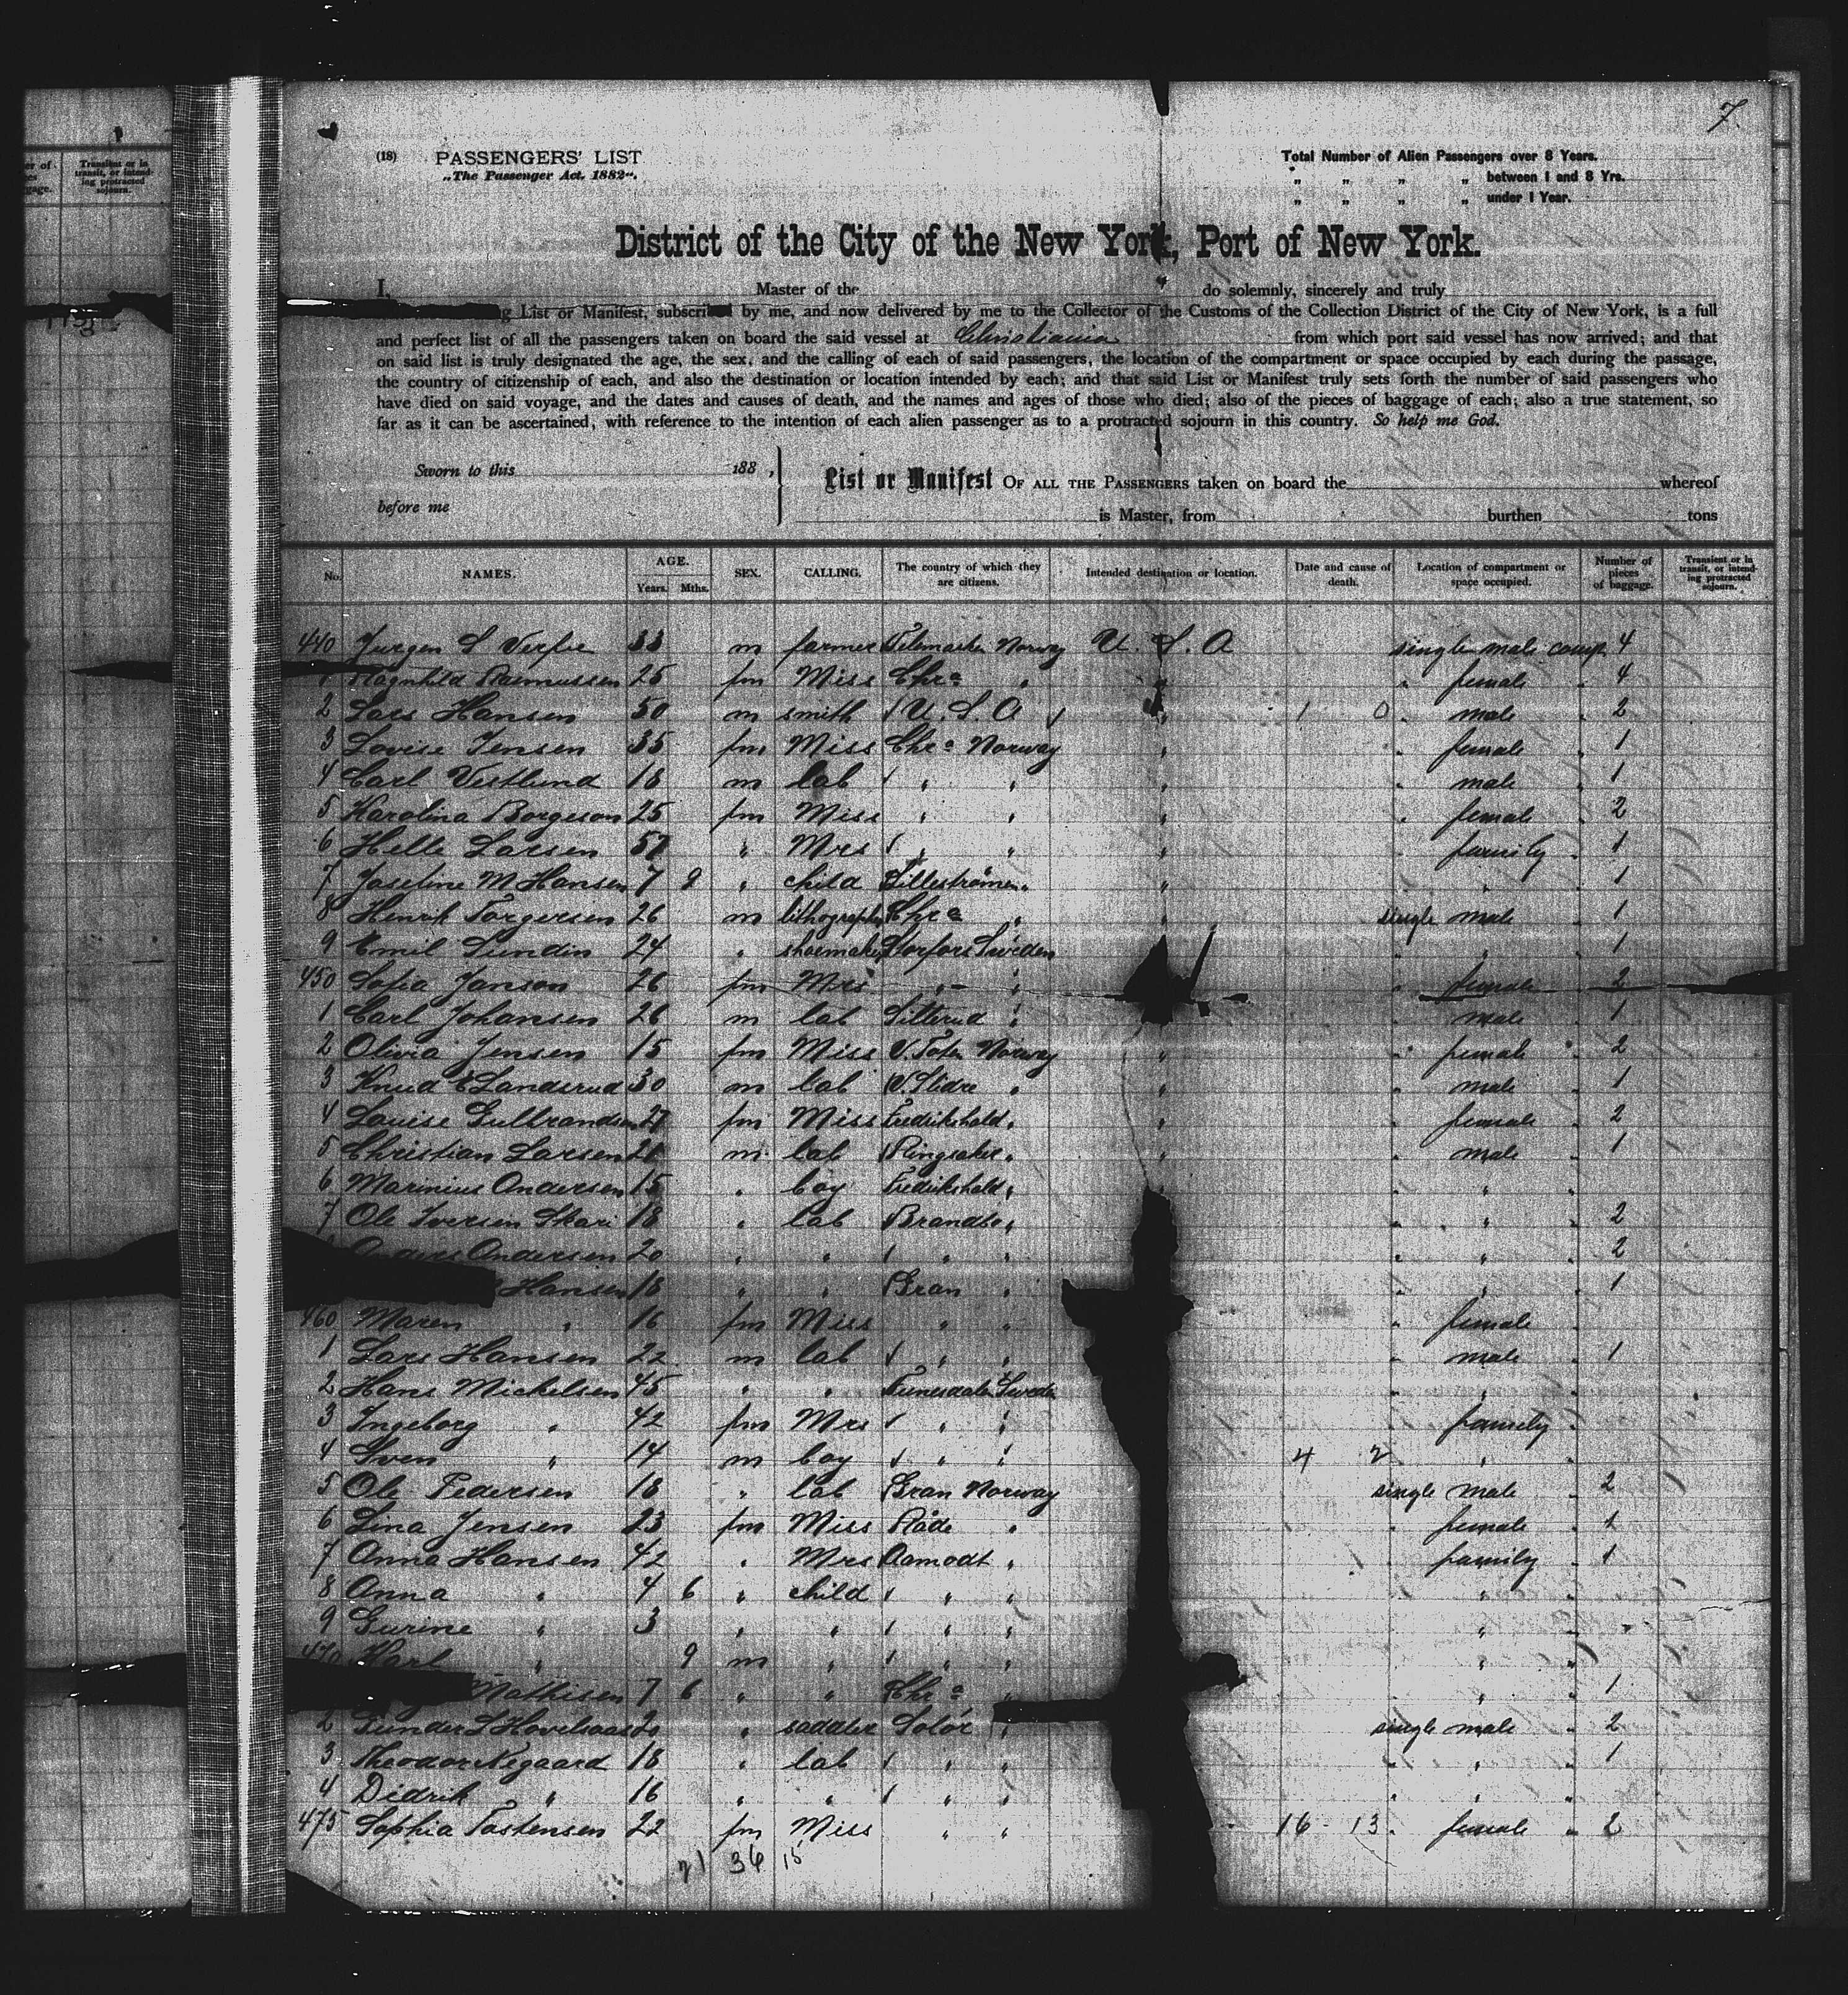 7.
er of
gage.
Transient or in
transit, or intend-
ing protracted
sojourn.
(18) PASSENGERS' LIST
„The Passenger Act, 1882“.
Total Number of Alien Passengers over 8 Years.
„ „ „ „ between 1 and 8 Yrs.
„ „ „ „ under 1 Year.
District of the City of the New York, Port of New York.
I, Master of the do solemnly, sincerely and truly
g List or Manifest, subscribed by me, and now delivered by me to the Collector of the Customs of the Collection District of the City of New York, is a full
and perfect list of all the passengers taken on board the said vessel at Christiania from which port said vessel has now arrived; and that
on said list is truly designated the age, the sex, and the calling of each of said passengers, the location of the compartment or space occupied by each during the passage,
the country of citizenship of each, and also the destination or location intended by each; and that said List or Manifest truly sets forth the number of said passengers who
have died on said voyage, and the dates and causes of death, and the names and ages of those who died; also of the pieces of baggage of each; also a true statement, so
far as it can be ascertained, with reference to the intention of each alien passenger as to a protracted sojourn in this country. So help me God.
Sworn to this 188 ,
before me
List or Manifest OF ALL THE PASSENGERS taken on board the whereof
is Master, from burthen tons
No. NAMES. AGE. Years. Mths. SEX. CALLING. The country of which they are citizens. Intended destination or location. Date and cause of death. Location of compartment or space occupied. Number of pieces of baggage. Transient or in transit, or intend-ing protracted sojourn.
440 Jurgen S 33 m farmer Telemarken Norway U. S. A single male comp. 4
1 Ragnhild Rasmussen 25 fm Miss Chra " " female " 4
2 Lars Hansen 50 m smith U. S. A " 1 0 " male " 2
3 Lovise Jensen 35 fm Miss Chra Norway " " female " 1
4 Carl Vestlund 18 m lab " " " " male " 1
5 Karolina Borgeson 25 fm Miss " " " " female " 2
6 Helle Larsen 57 " Mrs " " " " family " 1
7 Josefine M Hansen 7 9 " child Lillestrømen " " " " 1
8 Henrik Torgersen 26 m lithograph Chra " " single male " 1
9 Emil Sundin 24 " shoemaker Storfors Sweden " " " 1
450 Sofia Janson 26 fm Mrs " " " female " 2
1 Carl Johansen 26 m lab Sitterud " " male " 1
2 Olivia Jensen 15 fm Miss V. Toten Norway " " female " 2
3 Knud E Landsrud 30 m lab V. Slidre " " " male " 1
4 Louise Gulbrandsen 27 fm Miss Fredrikshald " " " female " 2
5 Christian Larsen 21 m lab Ringsaker " " " male " 1
6 Marinius Andersen 15 " boy Fredrikshald " " "
7 Ole Iversen Skari 18 " lab Brandbo " " " " 2
Anders Andersen 20 " " " " " " " 2
Hansen 18 " " Gran " " " " 1
460 Maren " 16 fm Miss " " " female "
1 Lars Hansen 22 m lab " " " male " 1
2 Hans Mickelsen 45 " " Funesdalen Sweden " " "
3 Ingeborg " 42 fm Mrs " " " family "
4 Sven " 14 m boy " " 4 2 " "
5 Ole Pedersen 18 " lab Gran Norway single male " 2
6 Lina Jensen 23 fm Miss Råde " " female " 1
7 Anna Hansen 42 " Mrs Aamodt " " family " 1
8 Anna " 4 6 " child " " "
9 Gurine " 3 " " " " " "
470 Karl " 9 m " " " " "
Mathisen 7 6 " " Chra " " " 1
2 Gunder S 20 " saddler Solör " single male " 2
3 Theodor Negaard 18 " lab " " " " " 1
4 Didrik " 16 " " " " " " "
475 Sophia Tostensen 22 fm Miss " " 16 13 " female " 2
21 36 15